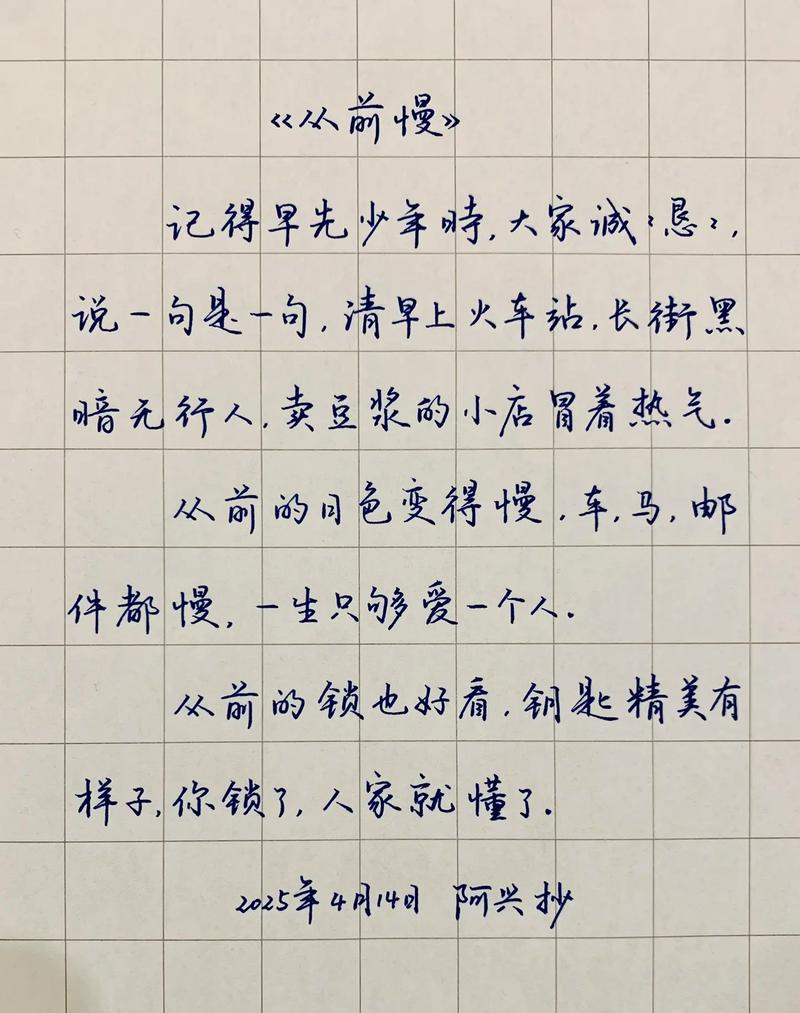 《从前慢》
记得早先少年時,大家诚〻恳〻,
说一句是一句,清早上火车站,长街黑
暗无行人,卖豆浆的小店冒着热气.
从前的日色变得慢,车,马,邮
件都慢,一生只够爱一个人.
从前的锁也好看,钥匙精美有
样子,你锁了,人家就懂了.
2025年4月14日 阿兴抄